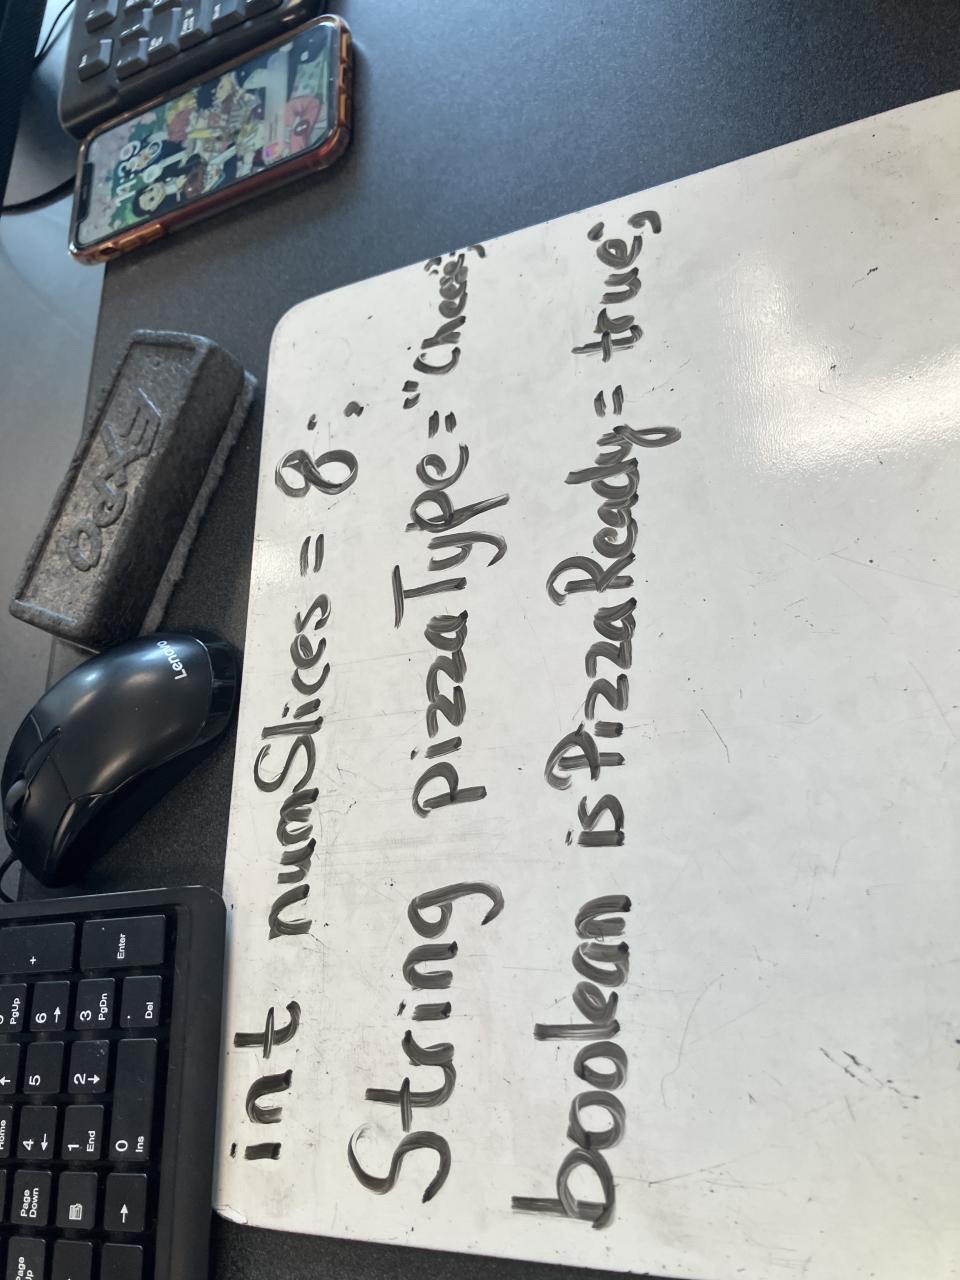 int numSlices = 8;
String pizzaType = "Cheese";
boolean isPizzaReady = true;
11:39
EXPO
Lenovo
+
Enter
PgUp
6 →
3 PgDn
. Del
5
2 ↓
Home
4 ←
1 End
0 Ins
Page Down
→
Page Up